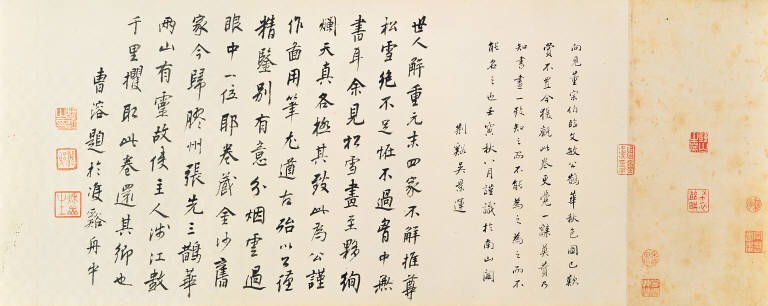 向見董宗伯臨文敏公鵲華秋色圖已歎
賞不置今獲觀此卷更覺一辭莫贊乃
知書畫一致知之而不能為之為之而不
能名之也壬寅秋八月謹識於南山閣
荊谿吳景運
世人解重元末四家不解推尊
松雪絕不足怪不過胷中無
書耳余見松雪畫至夥絢
爛天真各極其致此為公謹
作面用筆尤遒古殆以公謹
精鑒別有意分烟雲過
眼中一位耶卷藏金沙舊
家今歸膠州張先三鵲華
兩山有靈故使主人涉江數
千里攫取此卷還其鄉也
曹溶題於渡谿舟中